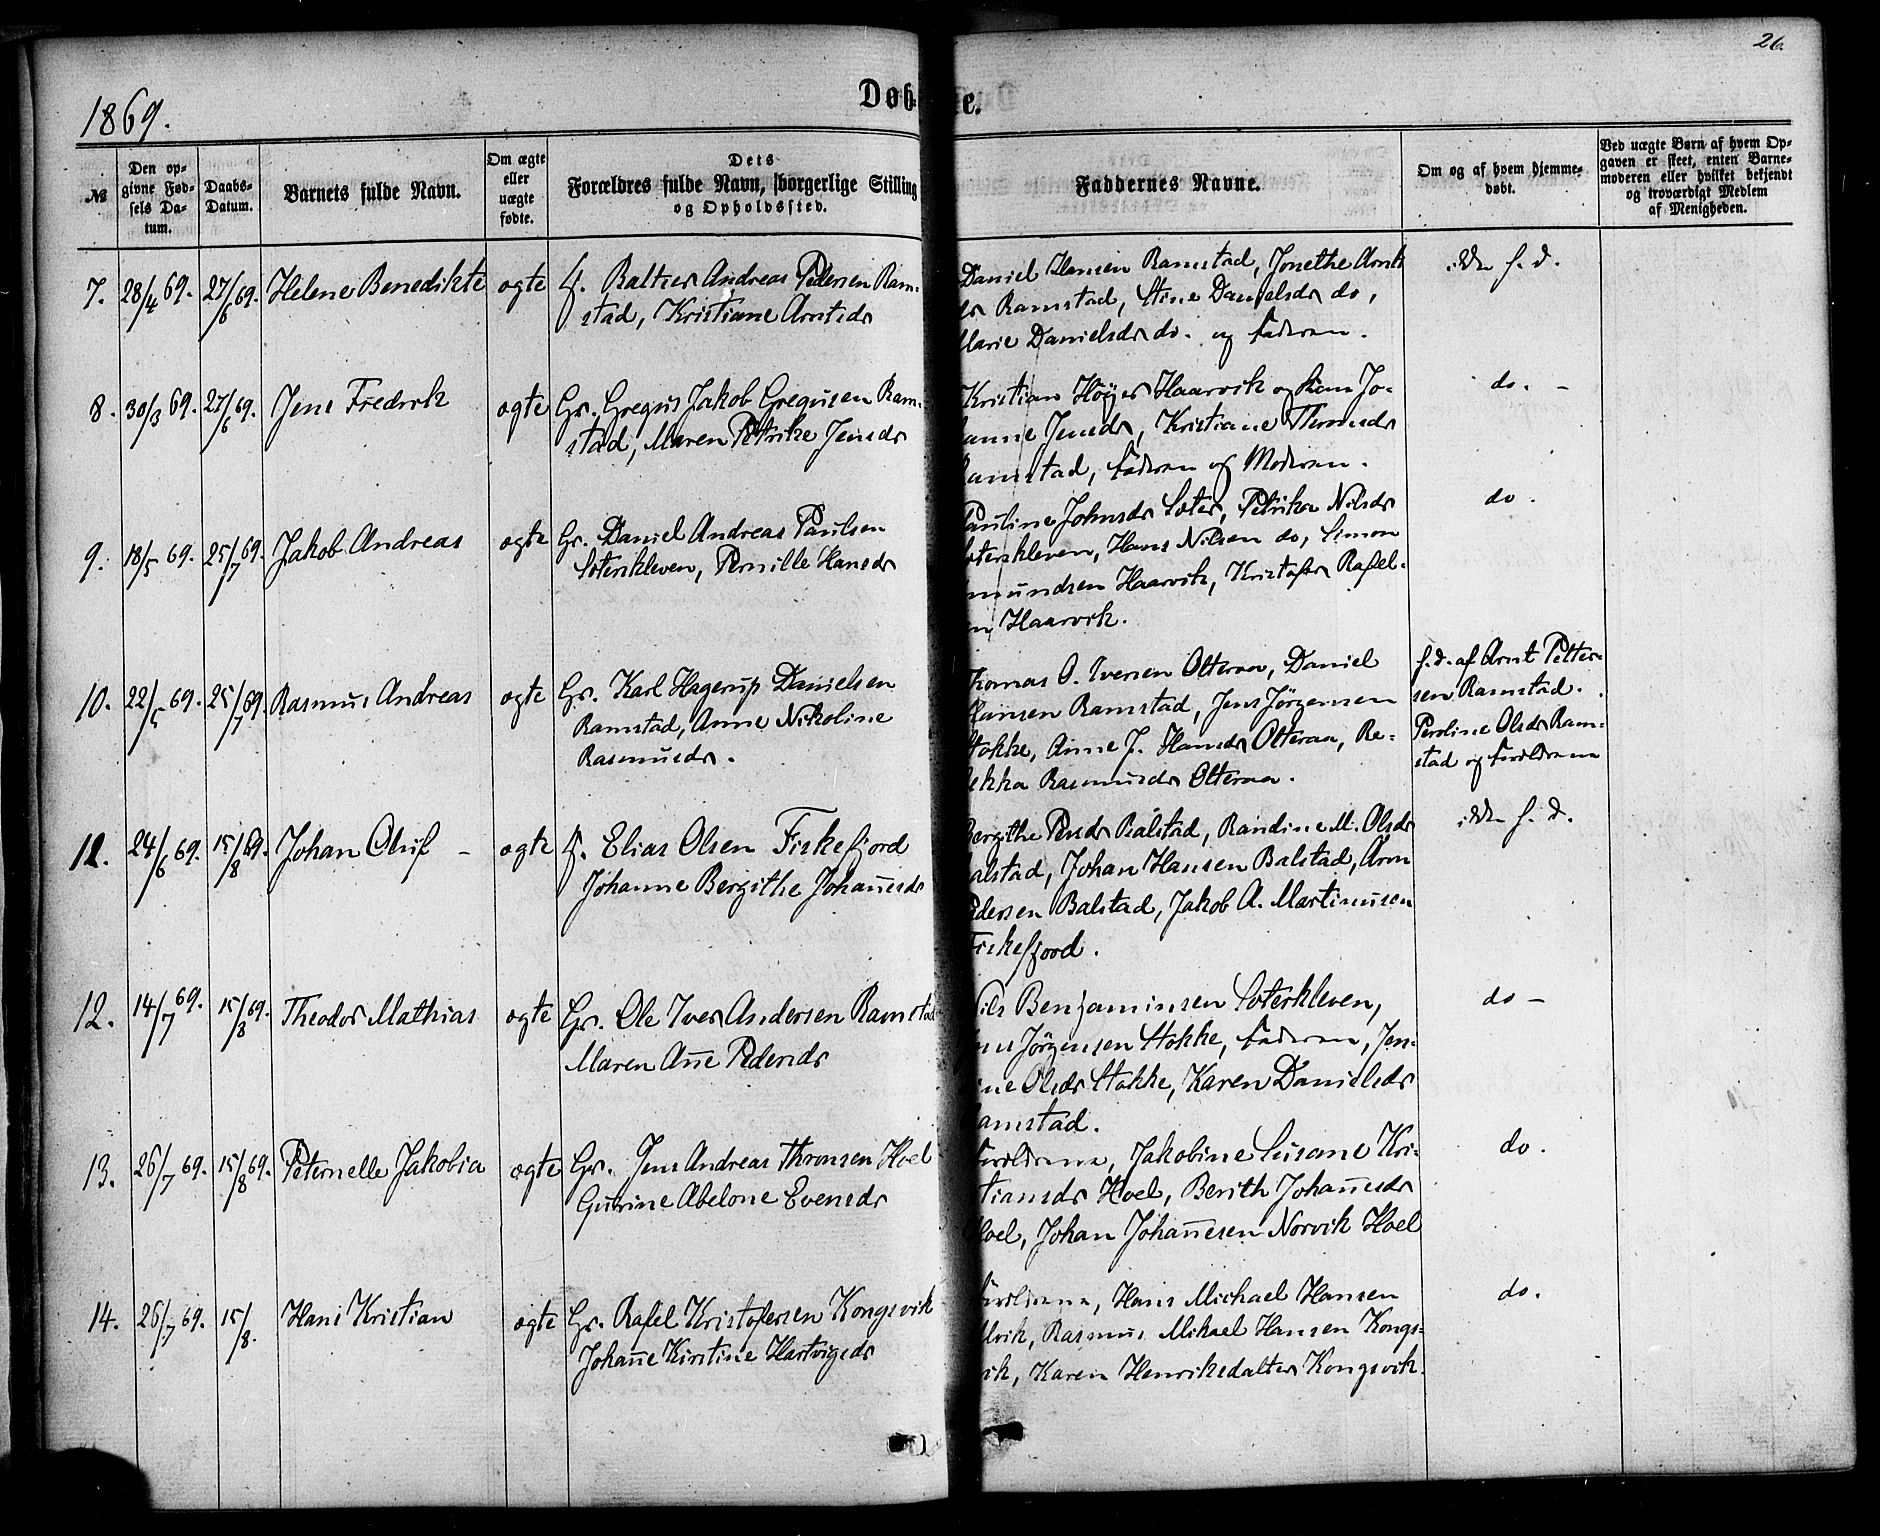 26.
1869.
Døb- te.
№
Den opgivne Fødsels Datum.
Daabs-Datum.
Barnets fulde Navn.
Om ægte eller uægte fødte.
Dets Forældres fulde Navn, borgerlige Stilling og Opholdssted.
Faddernes Navne.
Om og af hvem hjemmedøbt.
Ved uægte Børn af hvem Opgaven er skeet, enten Barnemoderen eller hvilket bekjendt og troværdigt Medlem af Menigheden.
7. 28/4 69. 27/6 69. Helene Benedikte ægte f. Baltser Andreas Pedersen Ram-
stad, Kristiane Arntsdr
Daniel Hansen Ramstad, Jonethe Arnts
dr Ramstad, Stine Danielsdr do,
Marie Danielsdr do. og Faderen.
ikke h. d.
8. 30/3 69. 27/6 69. Jens Fredrik ægte Gr. Gregus Jakob Gregusen Ram-
stad, Maren Petrike Jensdr
Kristian Höyer Haarvik og Kone Jo-
hanne Jensdr, Kristiane Thomsdr
Ramstad, Faderen og Moderen.
do. -
9. 18/5 69. 25/7 69. Jakob Andreas ægte Gr. Daniel Andreas Paulsen
Sæterskleven, Pernille Hansdr
Pauline Johnsdr Sæter, Petrika Nilsdr
æterskleven, Hans Nilsen do, Simon
mundsen Haarvik, Kristofer Rafel-
en Haarvik.
do.
10. 22/5 69. 25/7 69. Rasmus Andreas ægte Gr. Karl Hagerup Danielsen
Ramstad, Anne Nikoline
Rasmusdr.
Thomas O. Iversen Otteraa, Daniel
Hansen Ramstad, Jens Jörgensen
Stokke, Anne J. Hansdr Otteraa, Re-
bekka Rasmusdr Otteraa.
h. d. af Arnt Petter-
sen Ramstad.
Peroline Olsdr Ram-
stad og Forældrene
11. 24/6 69. 15/8 69. Johan Oluf - ægte f. Elias Olsen Fiskefjord
Johanne Bergithe Johan̄esdr
Bergithe Pedsdr Balstad, Randine M. Olsdr
alstad, Johan Hansen Balstad, Arn
edersen Balstad, Jakob A. Martinusen
Fiskefjord.
ikke h. d.
12. 14/7 69. 15/8 69. Theodor Mathias ægte Gr. Ole Iver Andersen Ramstad
Maren An̄e Pedersdr
Nils Benjaminsen Sæterkleven,
ens Jörgensen Stokke, Faderen, Jen-
ine Olsdr Stokke, Karen Danielsdr
amstad.
do -
13. 26/7 69. 15/8 69. Peternelle Jakobia ægte Gr. Jens Andreas Thronsen Hoel
Gurine Abelone Evensdr
Forældrene, Jakobine Susane Kri-
stiansdr Hoel, Berith Johan̄esdr
Hoel, Johan Johan̄esen Norvik Hoel
do.
14. 26/7 69. 15/8. Hans Kristian ægte Gr. Rafel Kristofersen Kongsvik
Johan̄e Kirstine Hartvigsdr
Forældrene, Hans Michael Hansen
lvik, Rasmus Mikael Hansen Kongs-
vik, Karen Henriksdatter Kongsvik.
do.